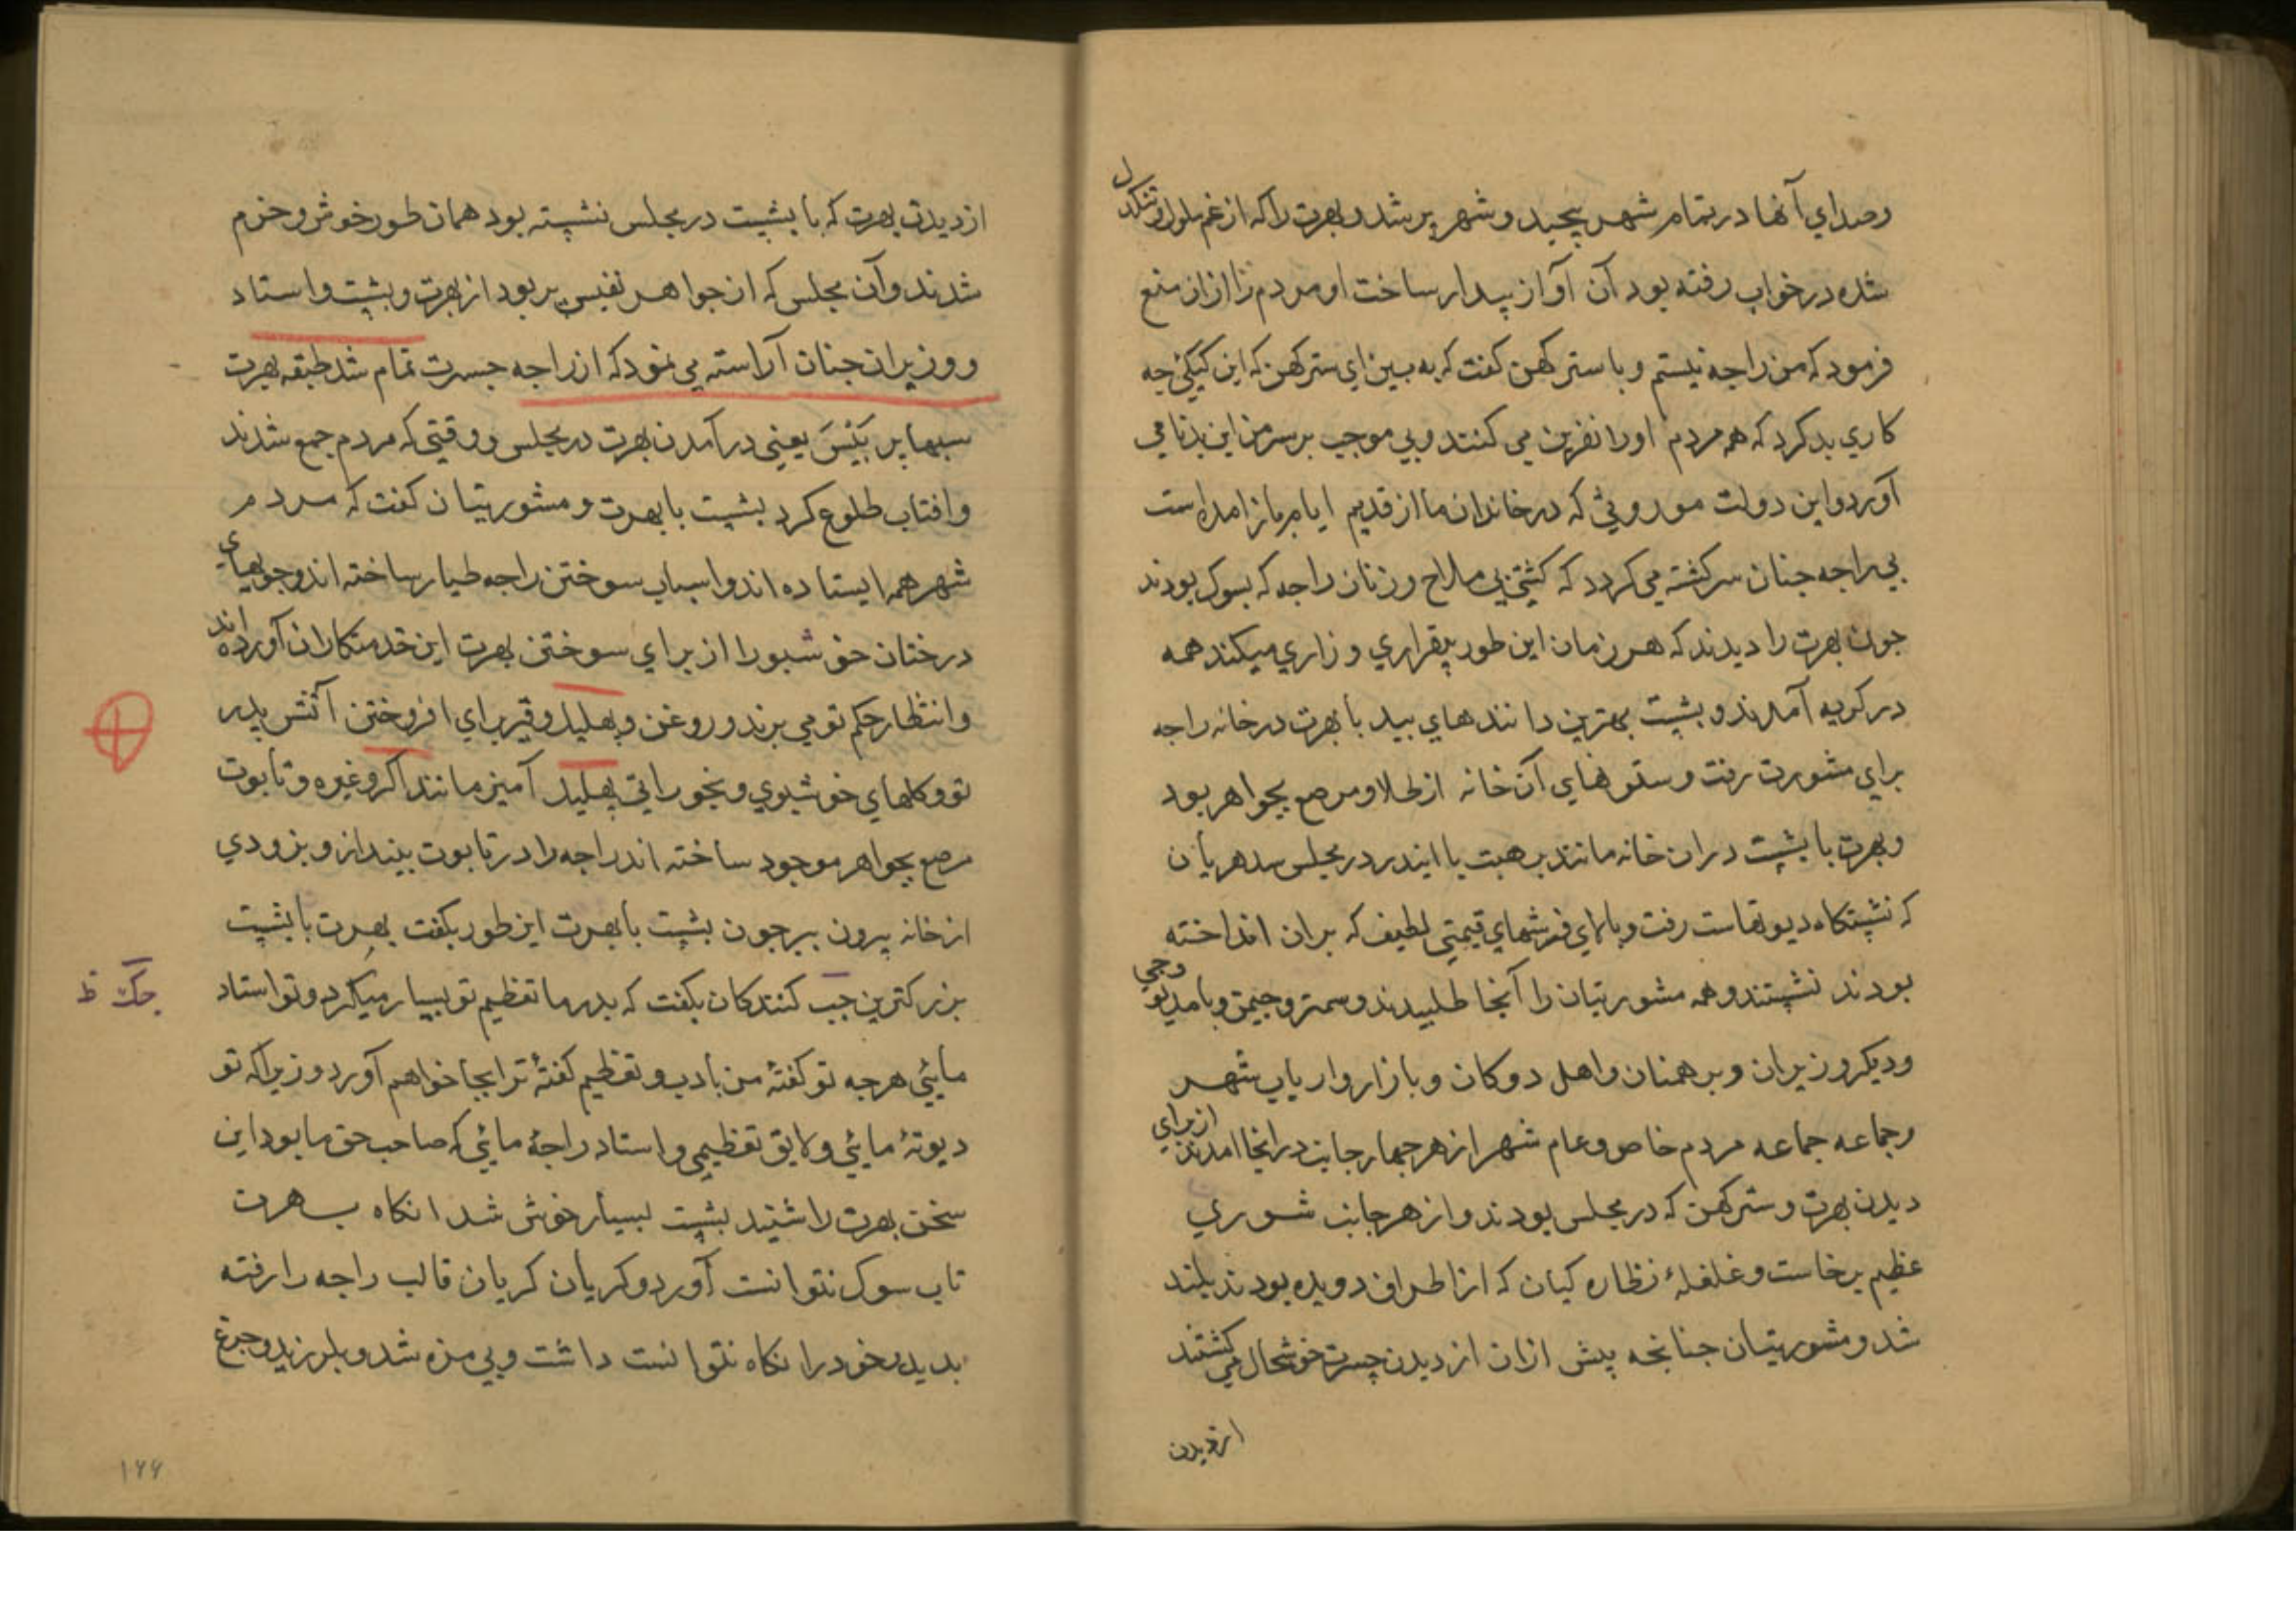 وصداي آنها در تمام شهر پیچید و شهر پر شد و بهرت را که از غم ملول و تنکدل
شده در خواب رفته بود آن آواز بیدار ساخت او مردم را ازان منع
فرمود که من راجه نیستم و با ستر کهن کفت که به بین ای ستر کهن که این کیکئی چه
کاری بد کرد که همه مردم او را نفرین می کنند و بی موجب بر سر من این بدنامی
آورد و این دولت موروثی که در خاندان ما از قدیم ایام باز امده است
بی راجه جنان سرکشته می کردد که کشتی بی ملاح و زنان راجه که بسوک بودند
جون بهرت را دیدند که هر زمان این طور بیقراری و زاری میکند همه
در کریه آمدند و بشپت بهترین دانندهای بید با بهرت در خانه راجه
برای مشورت رفت و ستونهای آن خانه از طلا و مرصع بجواهر بود
و بهرت با بشپت دران خانه مانند برهبت با ایندر در مجلس سدهریان
که نشستکاه دیوتهاست رفت و بالای فرشهای قیمتی لطیف که بران انداخته
بودند نشستند و همه مشورتیان را آنجا طلبیدند و سمترو جیمن و بامدیو وجی
و دیکر وزیران و برهمنان و اهل دوکان و بازار و ارباب شهر
و جماعه جماعه مردم خاص و عام شهر از هر جهار جانب در انجا امدند از برای
دیدن بهرت و ستر کهن که در مجلس بودند و از هر جانب شوری
عظیم برخاست و غلغلهٔ نظاره کیان که از اطراف دویده بودند بلند
شد و مشورتیان جنانچه پیش ازان از دیدن جسرت خوشحال می کشتند
از دیدن
از دیدن بهرت که با بشپت در مجلس نشسته بود همان طور خوش و خرم
شدند و آن مجلس که از جواهر نفیس پر بود از بهرت و بشپت و استاد
و وزیران جنان آراسته می نمود که از راجه جسرت تمام شد طبقه بهرت
سبها پر بَیْسَ یعنی در آمدن بهرت در مجلس و وقتی که مردم جمع شدند
و افتاب طلوع کرد بشپت با بهرت و مشورتیان کفت که مردم
شهر همه ایستاده اند و اسباب سوختن راجه طیار ساخته اند و جوبهای
درختان خوشبو را از برای سوختن بهرت این خدمتکاران آورده اند
و انتظار حکم تو می برند و روغن و پهلیل و قیر برای افروختن آتش پدر
تو و کلهای خوشبوی و بخوراتی پهلیل آمیز مانند اکر و غیره و تابوت
مرصع بجواهر موجود ساخته اند راجه را در تابوت بینداز و بزودی
از خانه بیرون ببر جون بشپت با بهرت این طور بکفت بهرت با بشپت
بزرکترین جب کنندکان بکفت که پدر ما تعظیم تو بسیار میکرد و تو استاد
جک ظ
مایی هرچه تو کفتهٔ من بادب و تعظیم کفتهٔ ترا بجا خواهم آورد و زیراکه تو
دیوتهٔ مائی و لایق تعظیمی و استاد راجهٔ مائی که صاحب حق ما بود این
سخن بهرت را شنید بشپت بسیار خوش شد انکاه بهرت
تاب سوک نتوانست آورد و کریان کریان قالب راجه را رفته
بدید و خود را نکاه نتوانست داشت و بی مزه شد و بلرزید و جرغ
۱۴۴